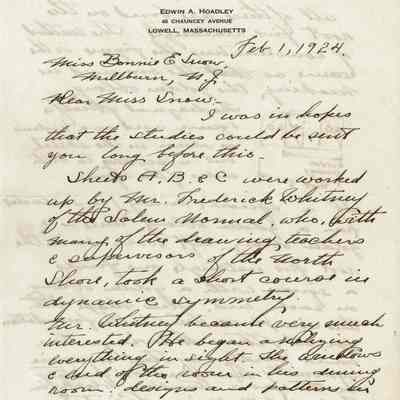 EDWIN A. HOADLEY
46 CHAUNCEY AVENUE
LOWELL, MASSACHUSETTS
Feb. 1, 1924.
Miss Bonnie E Snow,
Millburn, N.J.
Dear Miss Snow-
I was in hopes
that the studies could be sent
you long before this.
Sheets A, B. & C were worked
up by Mr. Frederick Whitney
of the Salem Normal, who, with
many of the drawing teachers
& supervisors of the North
Shore, took a short course in
dynamic symmetry.
Mr. Whitney became very much
interested. He began analyzing
everything in sight. The windows
& end of the room in his dining
room; designs and pattern in